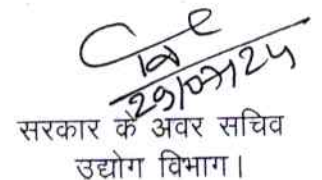 29/07/24
सरकार के अवर सचिव
उद्योग विभाग।